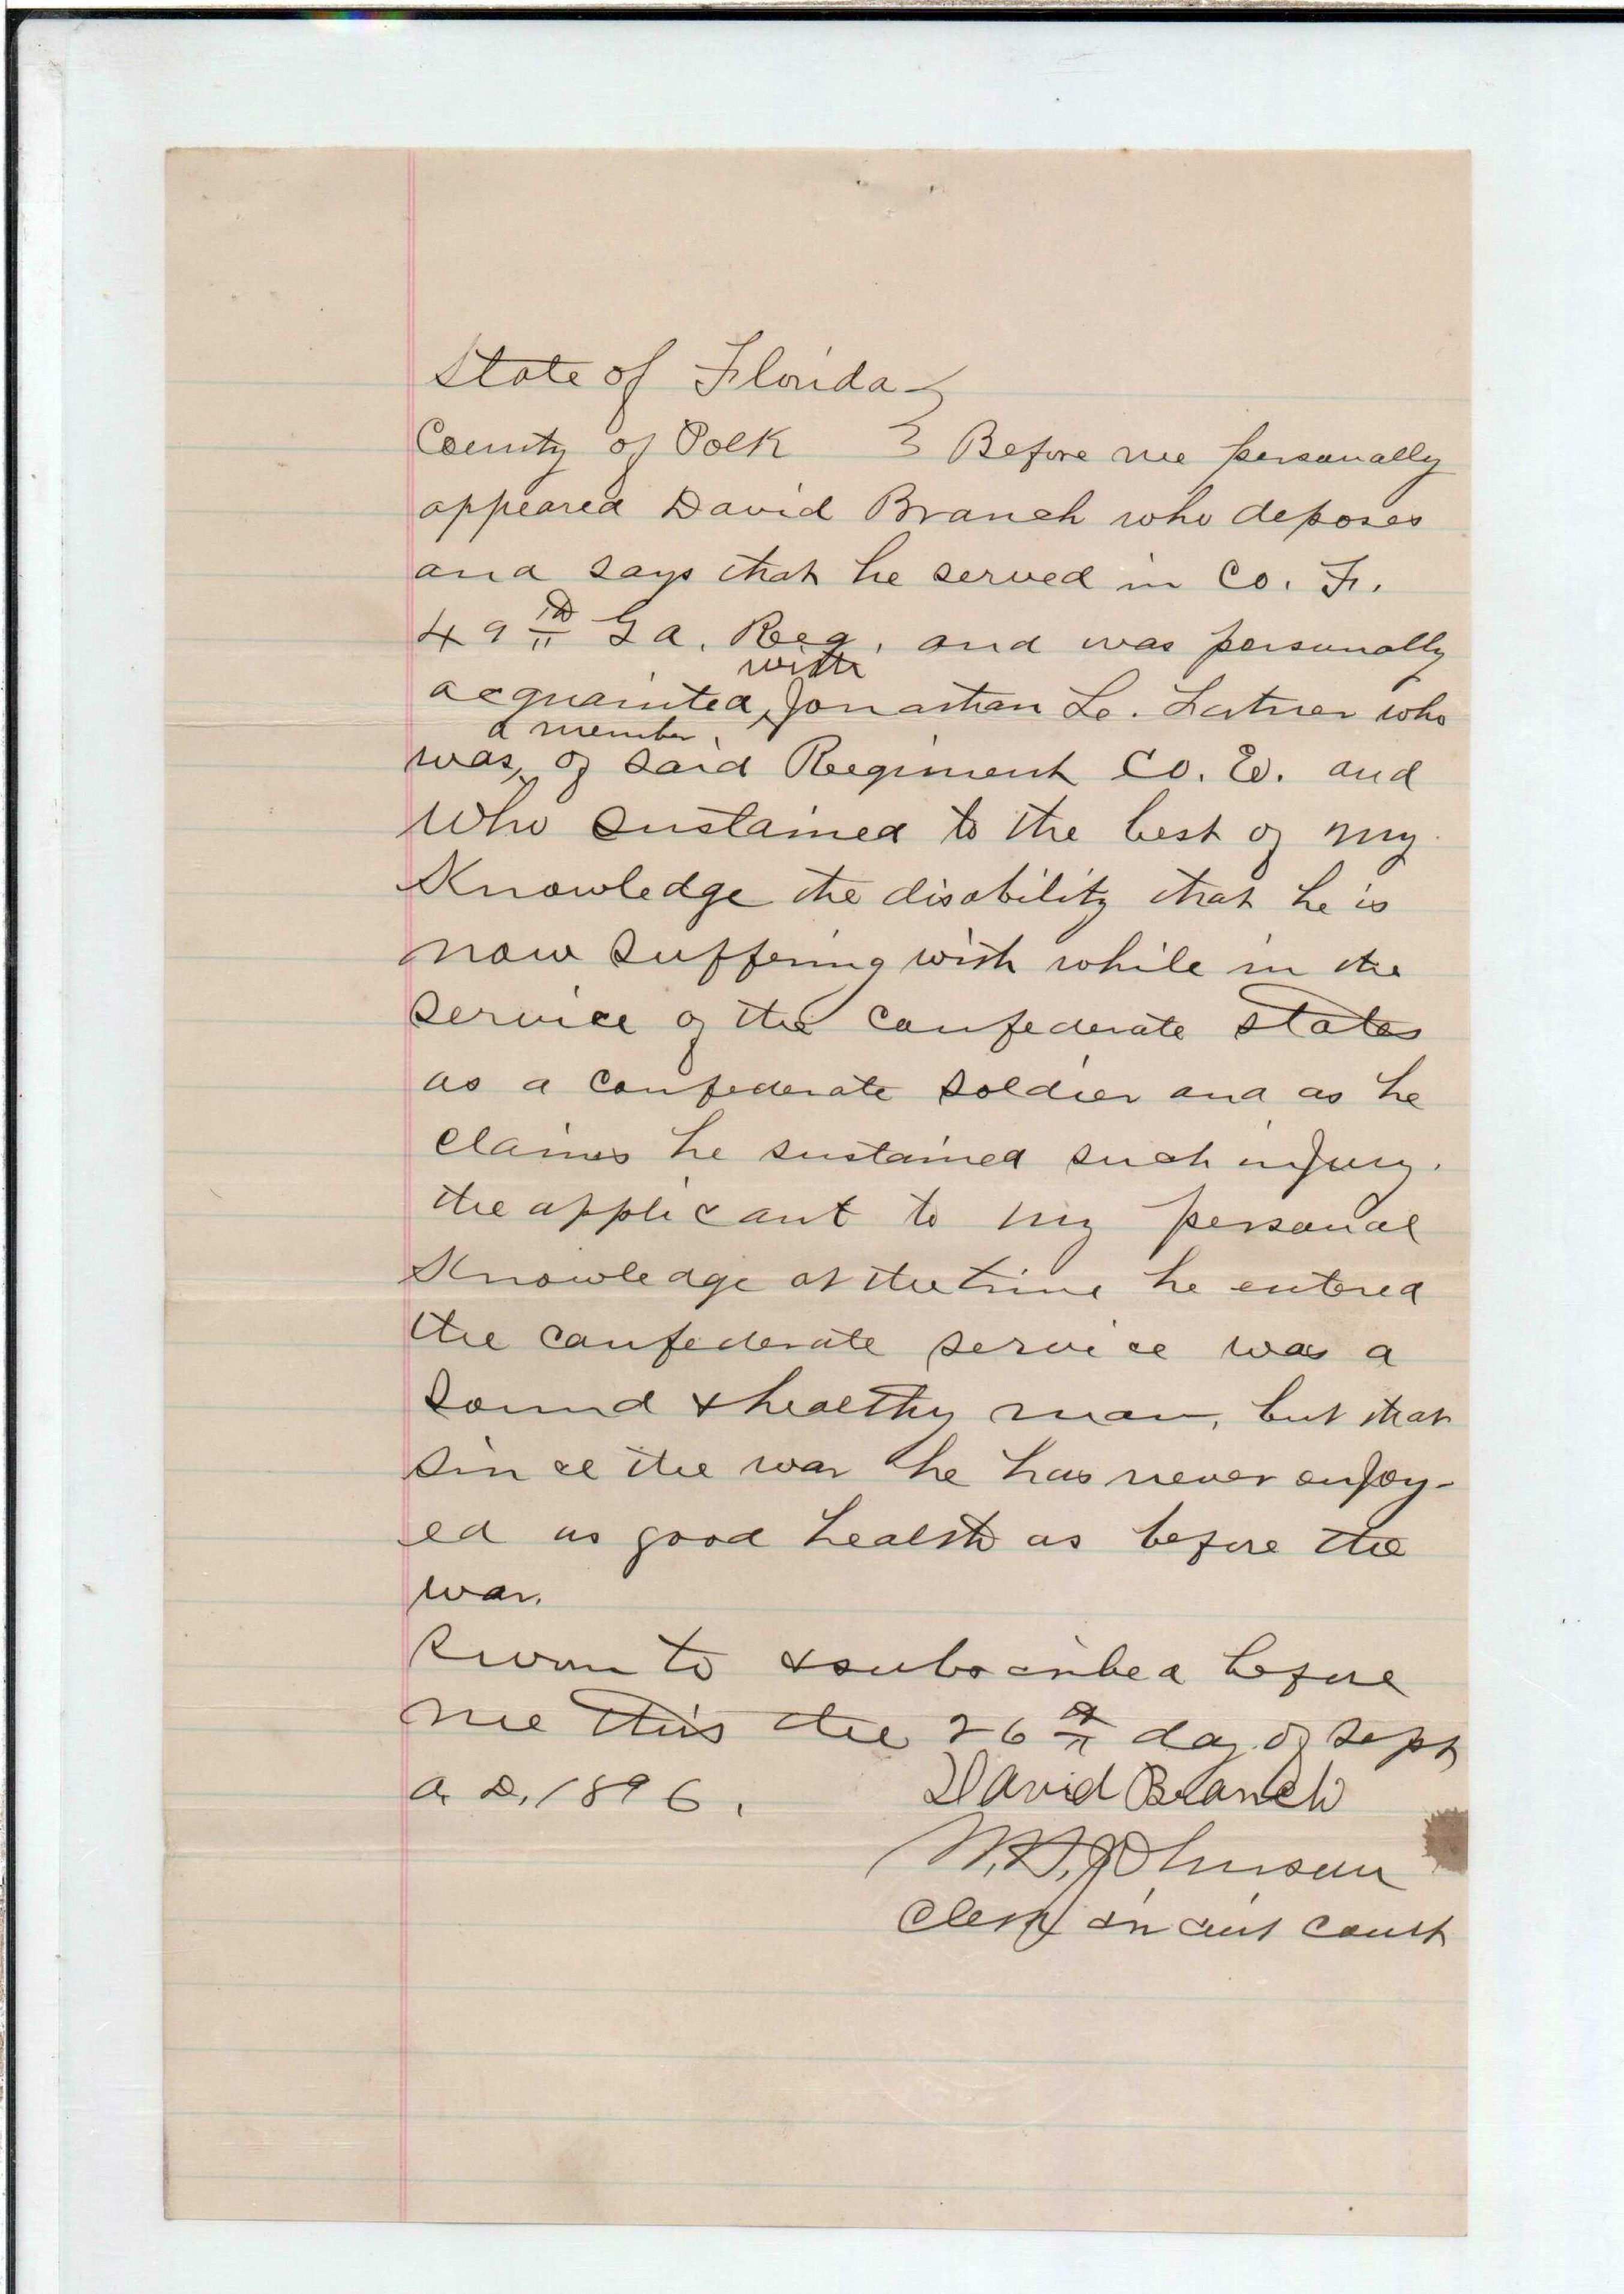 State of Florida }
County of Polk } Before me personally
appeared David Branch who deposes
and says that he served in Co. F.
49th Ga. Reg. and was personally
with
acquainted Jonathan L. who
a member
was of said Regiment Co. E. and
who sustained to the best of my
Knowledge the disability that he is
now suffering with while in the
service of the confederate states
as a confederate soldier and as he
claims he sustained such injury.
the applicant to my personal
Knowledge at the time he entered
the confederate service was a
sound & healthy man, but that
since the war he has never enjoy-
ed as good health as before the
war.
Sworn to & subscribed before
me this the 26th day of Sept
A. D. 1896. David Branch
Johnson
Clerk court